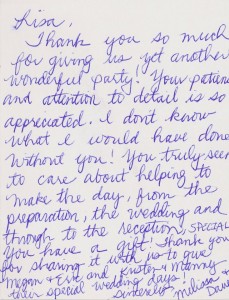 Lisa,
Thank you so much
for giving us yet another
wonderful party! Your patience
and attention to detail is so
appreciated. I don't know
what I would have done
without you! You truly seem
to care about helping to
make the day, from the
preparation, the wedding and
through to the reception, SPECIAL
You have a gift! Thank you
for sharing it with us to give
Megan & Eric and Kristen & Manny
their special wedding days.
Sincerely, Melissa &
Dave